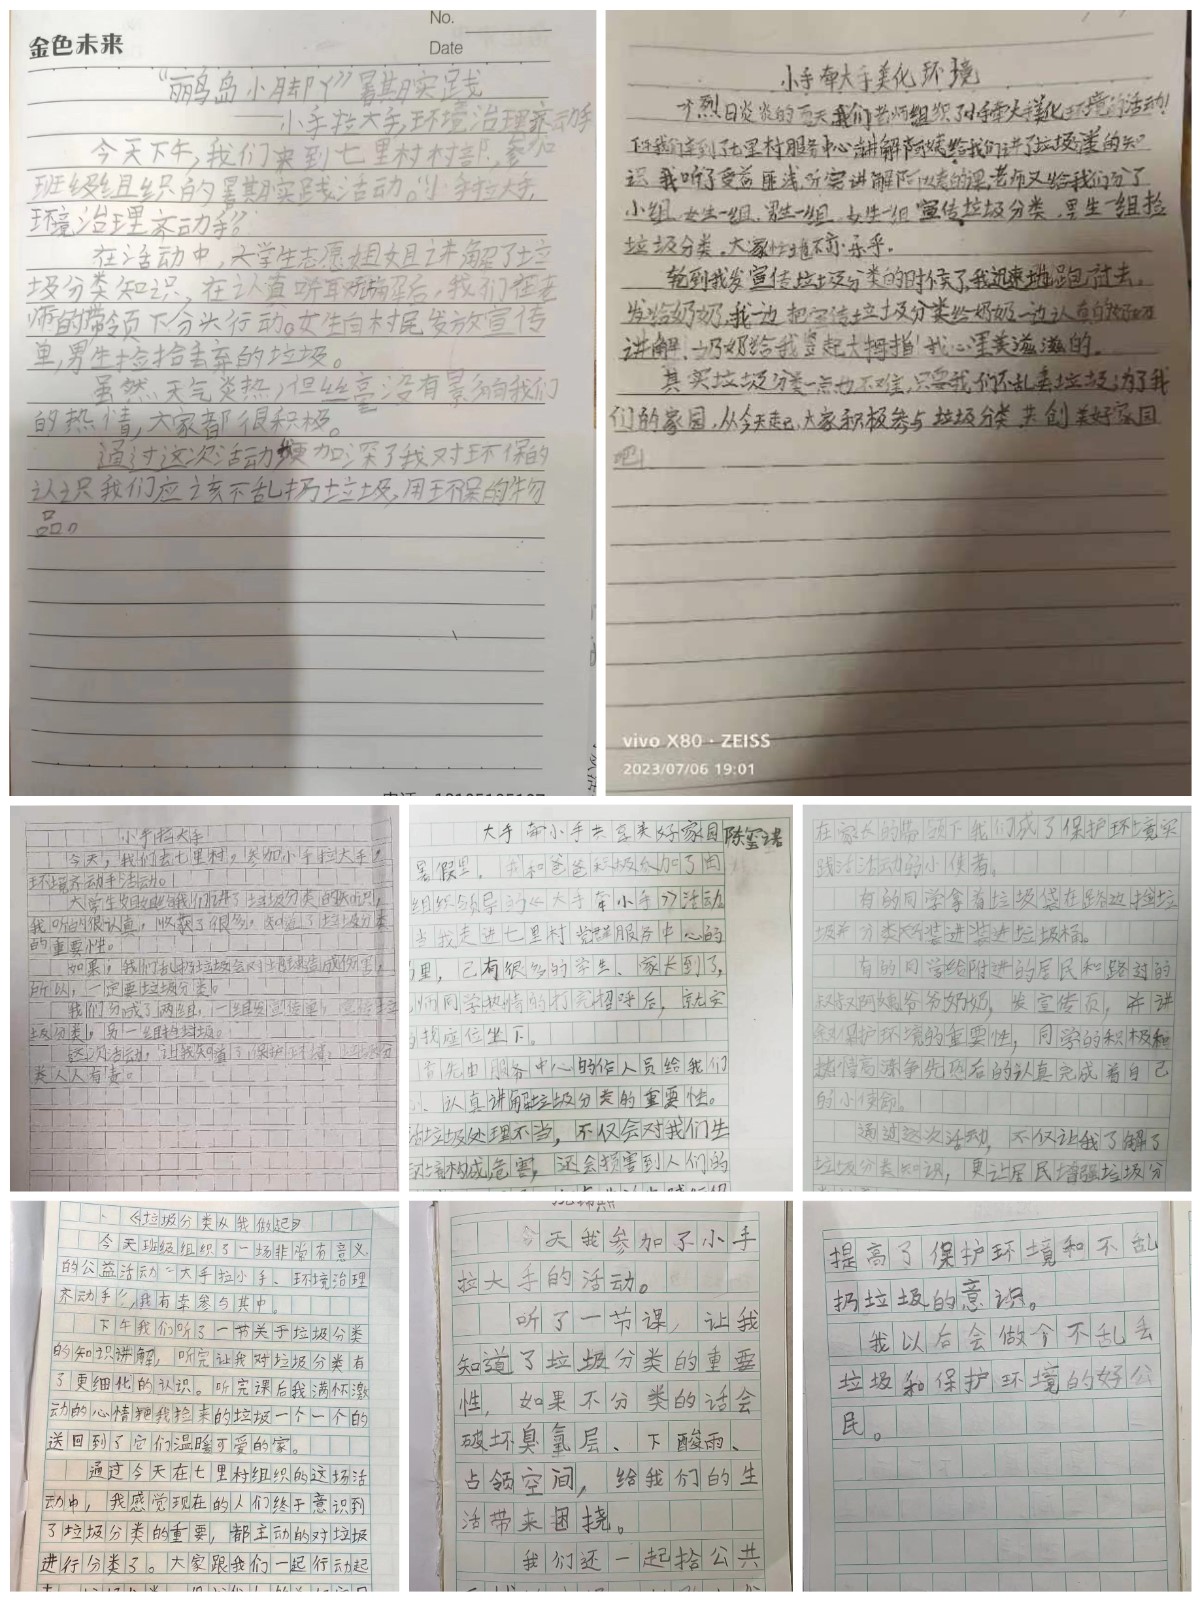 No.
金色未来
Date
“丽鸟岛小脚丫”暑期实践
小手拉大手,环境治理齐动手
今天下午,我们来到七里村村部,参加
班级组织的暑期实践活动。“小手拉大手,
环境治理齐动手”。
在活动中,大学生志愿姐姐讲解了垃
圾分类知识,在认真听耳讲解后,我们在老
师的带领下分头行动。女生向村民发放宣传
单,男生捡拾丢弃的垃圾。
虽然天气炎热,但丝毫没有影响我们
的热情,大家都很积极。
通过这次活动更加深了我对环保的
认识我们应该不乱扔垃圾,用环保的物
品。
小手牵大手美化环境
烈日炎炎的夏天我们老师组织了小手牵大手美化环境的活动!
我们来到了七里村服务中心讲解阿姨给我们讲了垃圾分类的知
识我听了受益匪浅听完讲解阿姨的课,老师又给我们分了
小组,女生一组,男生一组,女生一组宣传垃圾分类,男生一组捡
垃圾分类。大家忙地不亦乐乎。
轮到我发宣传垃圾分类的时候了,我迅速地跑过去,
发给奶奶,我一边把宣传垃圾分类给奶奶一边认真的给奶奶
讲解,奶奶给我竖起大拇指!我心里美滋滋的。
其实垃圾分类一点也不难,只要我们不乱丢垃圾为了我
们的家园,从今天起,大家积极参与垃圾分类共创美好家园
吧!
vivo X80 · ZEISS
2023/07/06 19:01
小手拉大手
今天,我们去七里村,参加小手拉大手,
环境齐动手活动。
大学生姐姐给我们讲了垃圾分类的知识,
我听的很认真,收获了很多,知道了垃圾分类
的重要性。
如果,我们乱扔垃圾会对土壤造成伤害,
所以,一定要垃圾分类。
我们分成了两组,一组发宣传单,宣传
垃圾分类,另一组捡垃圾。
这次活动,让我知道了保护环境,垃圾分
类人人有责。
大手牵小手共享美好家园 陈玺诺
暑假里,我和爸爸积极参加了由
组织领导的《大手牵小手》活动
当我走进七里村党群服务中心的
里,已有很多的学生、家长到了,
师同学热情的打完招呼后,就去
找座位坐下。
首先由服务中心的工作人员给我们
、认真讲解垃圾分类的重要性。
垃圾处理不当,不仅会对我们生
环境构成危害,还会损害到人们的
在家长的带领下我们成了保护环境实
践活动的小使者。
有的同学拿着垃圾袋在路边捡垃
圾并分类装进垃圾桶。
有的同学给附进的居民和路过的
叔叔阿姨爷爷奶奶,发宣传页,并讲
保护环境的重要性,同学的积极和
热情高涨争先恐后的认真完成着自己
的小使命。
通过这次活动,不仅让我了解了
垃圾分类知识,更让居民增强垃圾分
《垃圾分类从我做起》
今天班级组织了一场非常有意义
的公益活动“大手拉小手、环境治理
齐动手”,我有幸参与其中。
下午我们听了一节关于垃圾分类
的知识讲解,听完让我对垃圾分类有
了更细化的认识。听完课后我满怀激
动的心情把我捡来的垃圾一个一个的
送回到了它们温暖可爱的家。
通过今天在七里村组织的这场活
动中,我感觉现在的人们终于意识到
了垃圾分类的重要,都主动的对垃圾
进行分类了。大家跟我们一起行动起
今天我参加了小手
拉大手的活动。
听了一节课,让我
知道了垃圾分类的重要
性,如果不分类的话会
破坏臭氧层、下酸雨、
占领空间,给我们的生
活带来困挠。
我们还一起拾公共
提高了保护环境和不乱
扔垃圾的意识。
我以后会做个不乱丢
垃圾和保护环境的好公
民。